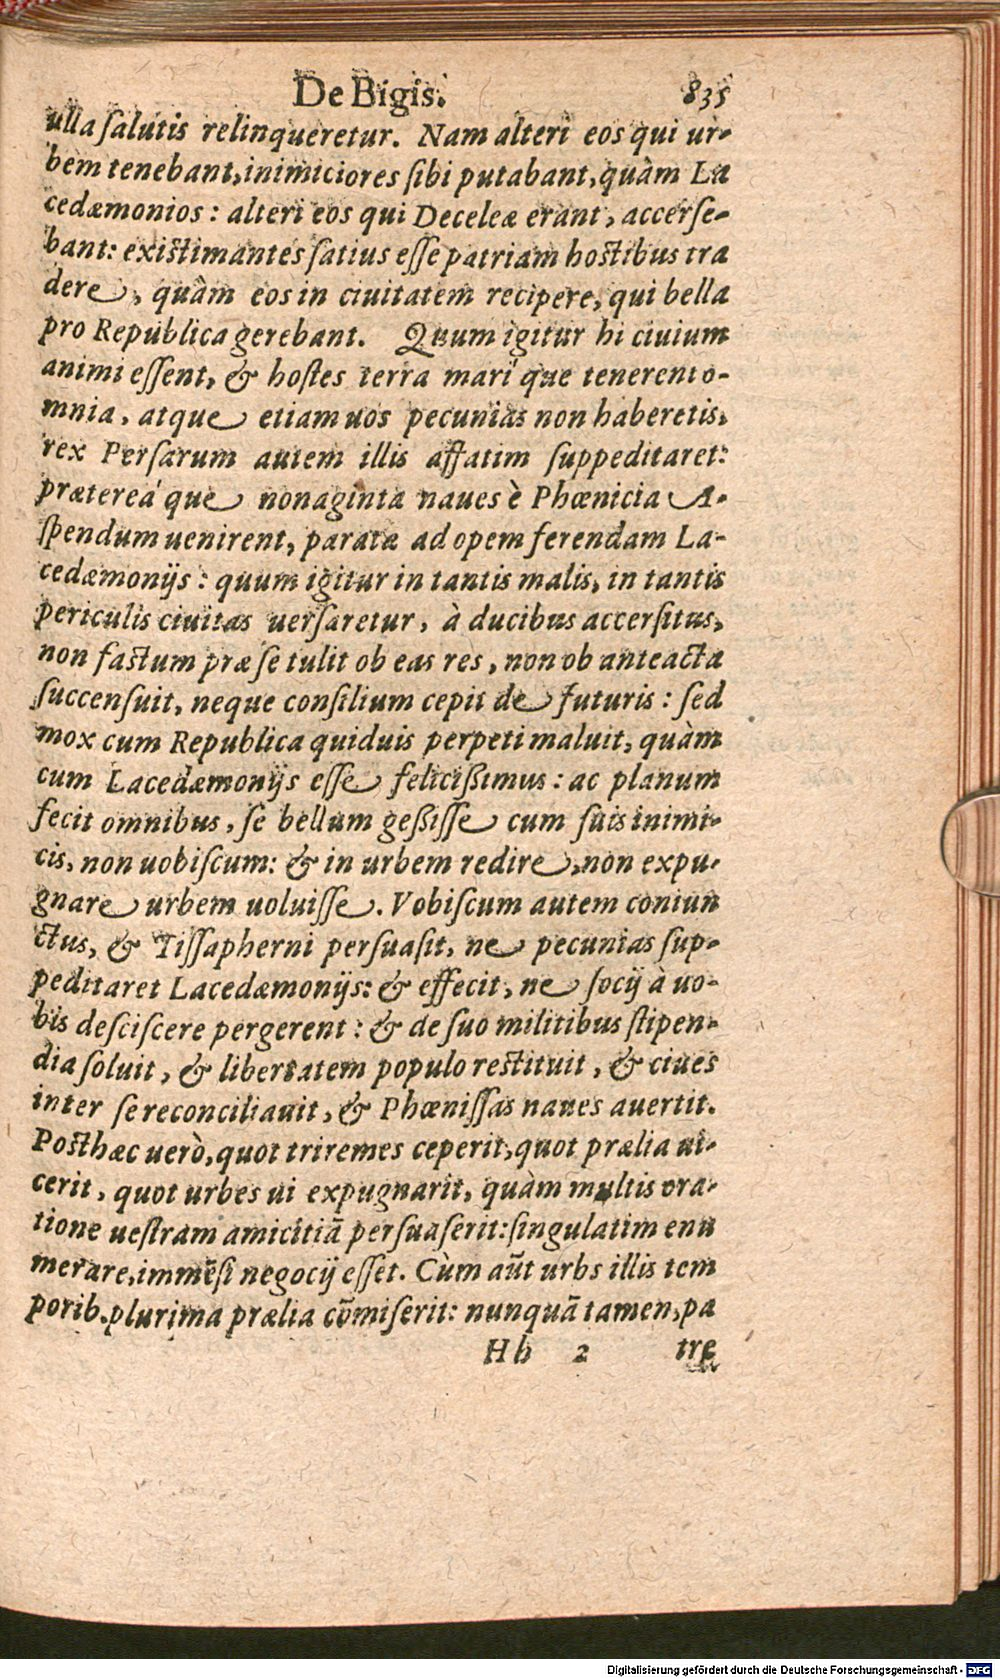 De Bigis. 835
ulla ſalutis relinqueretur. Nam alteri eos qui ur-
bem tenebant, inimiciores ſibi putabant, quàm La
cedæmonios: alteri eos qui Deceleæ erant, accerſe-
bant: exiſtimantes ſatius eſſe patriam hoſtibus tra
dere, quàm eos in ciuitatem recipere, qui bella
pro Republica gerebant. Quum igitur hi ciuium
animi eſſent, & hoſtes terra mari´que tenerent o-
mnia, atque etiam uos pecunias non haberetis,
rex Perſarum autem illis affatim ſuppeditaret:
præterea´que nonaginta naues è Phœnicia A-
ſpendum uenirent, paratæ ad opem ferendam La-
cedæmonijs: quum igitur in tantis malis, in tantis
periculis ciuitas uerſaretur, à ducibus accerſitus,
non faſtum præ ſe tulit ob eas res, non ob anteacta
ſuccenſuit, neque conſilium cepit de futuris: ſed
mox cum Republica quiduis perpeti maluit, quàm
cum Lacedæmonijs eſſe feliciſſimus: ac planum
fecit omnibus, ſe bellum geſſiſſe cum ſuis inimi-
cis, non uobiſcum: & in urbem redire, non expu-
gnare urbem uoluiſſe. Vobiſcum autem coniun
ctus, & Tiſſapherni perſuaſit, ne pecunias ſup-
peditaret Lacedæmonijs: & effecit, ne ſocij à uo-
bis deſciſcere pergerent: & de ſuo militibus ſtipen-
dia ſoluit, & libertatem populo reſtituit, & ciues
inter ſe reconciliauit, & Phœniſſas naues auertit.
Poſthæc uerò, quot triremes ceperit, quot prælia ui-
cerit, quot urbes ui expugnarit, quàm multis ora-
tione ueſtram amicitiā perſuaſerit: ſingulatim enu
merare, immēſi negocij eſſet. Cùm aūt urbs illis tem
porib. plurima prælia cōmiſerit: nunquā tamen, pa
Hh 2 tre
Digitalisierung gefördert durch die Deutsche Forschungsgemeinschaft - DFG